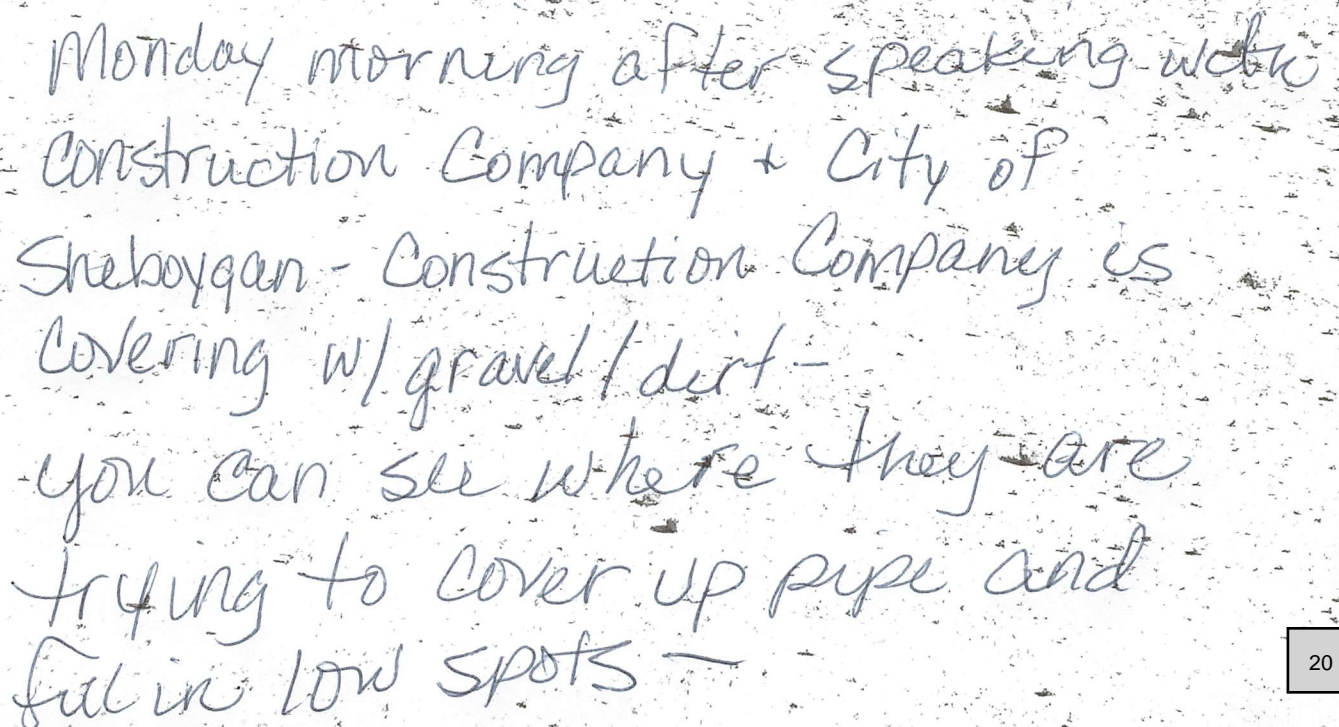 Monday morning after speaking with
Construction Company + City of
Sheboygan - Construction Company is
Covering w/ gravel / dirt -
you can see where they are
trying to cover up pipe and
fill in low spots -
20